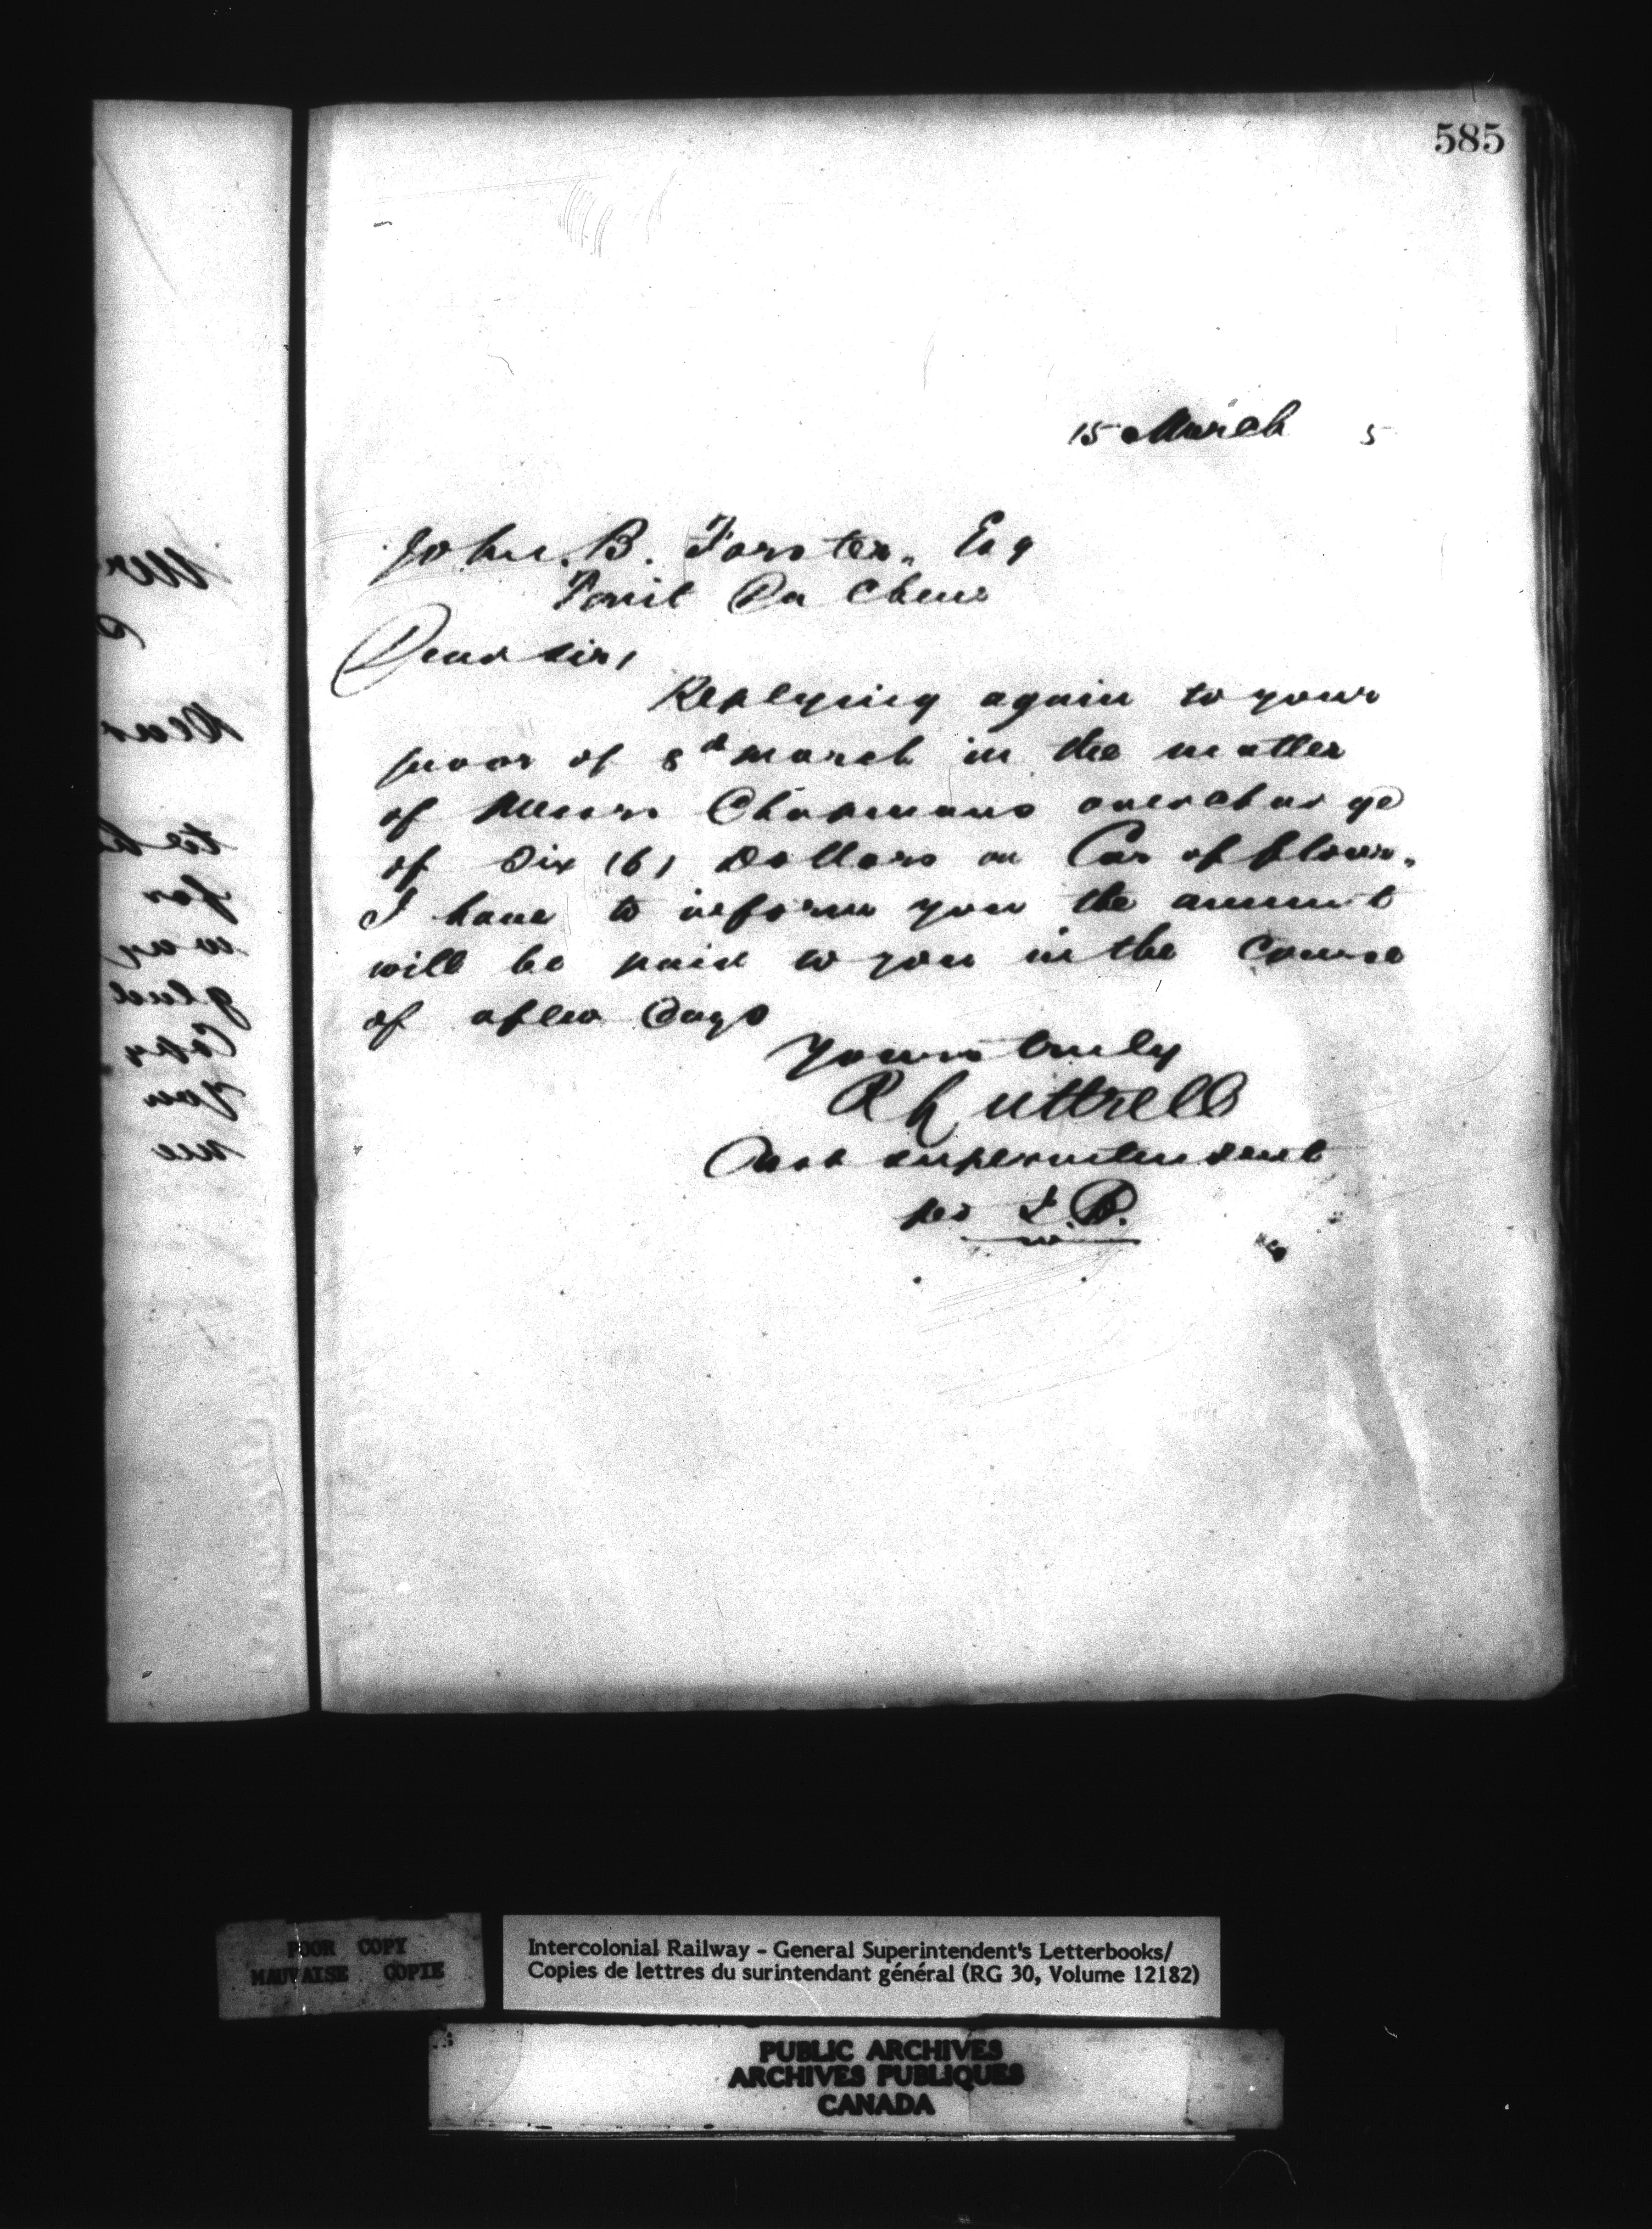 585
15 March 5
John. B. Forster. Esq
Fonit Du Chene
Dear Sir,
Replying again to your
favor of 8th March in the matter
of Messrs Chapmans overcharge
of Six (6) Dollars on Car of flour.
I have to inform you the amount
will be paid to you in the course
of a few Days
Yours truly
R Luttrell
Asst Superintendent
per
to
for
way
glad
Copy
you
me
POOR COPY
MAUVAISE COPIE
Intercolonial Railway - General Superintendent's Letterbooks/
Copies de lettres du surintendant général (RG 30, Volume 12182)
PUBLIC ARCHIVES
ARCHIVES PUBLIQUES
CANADA